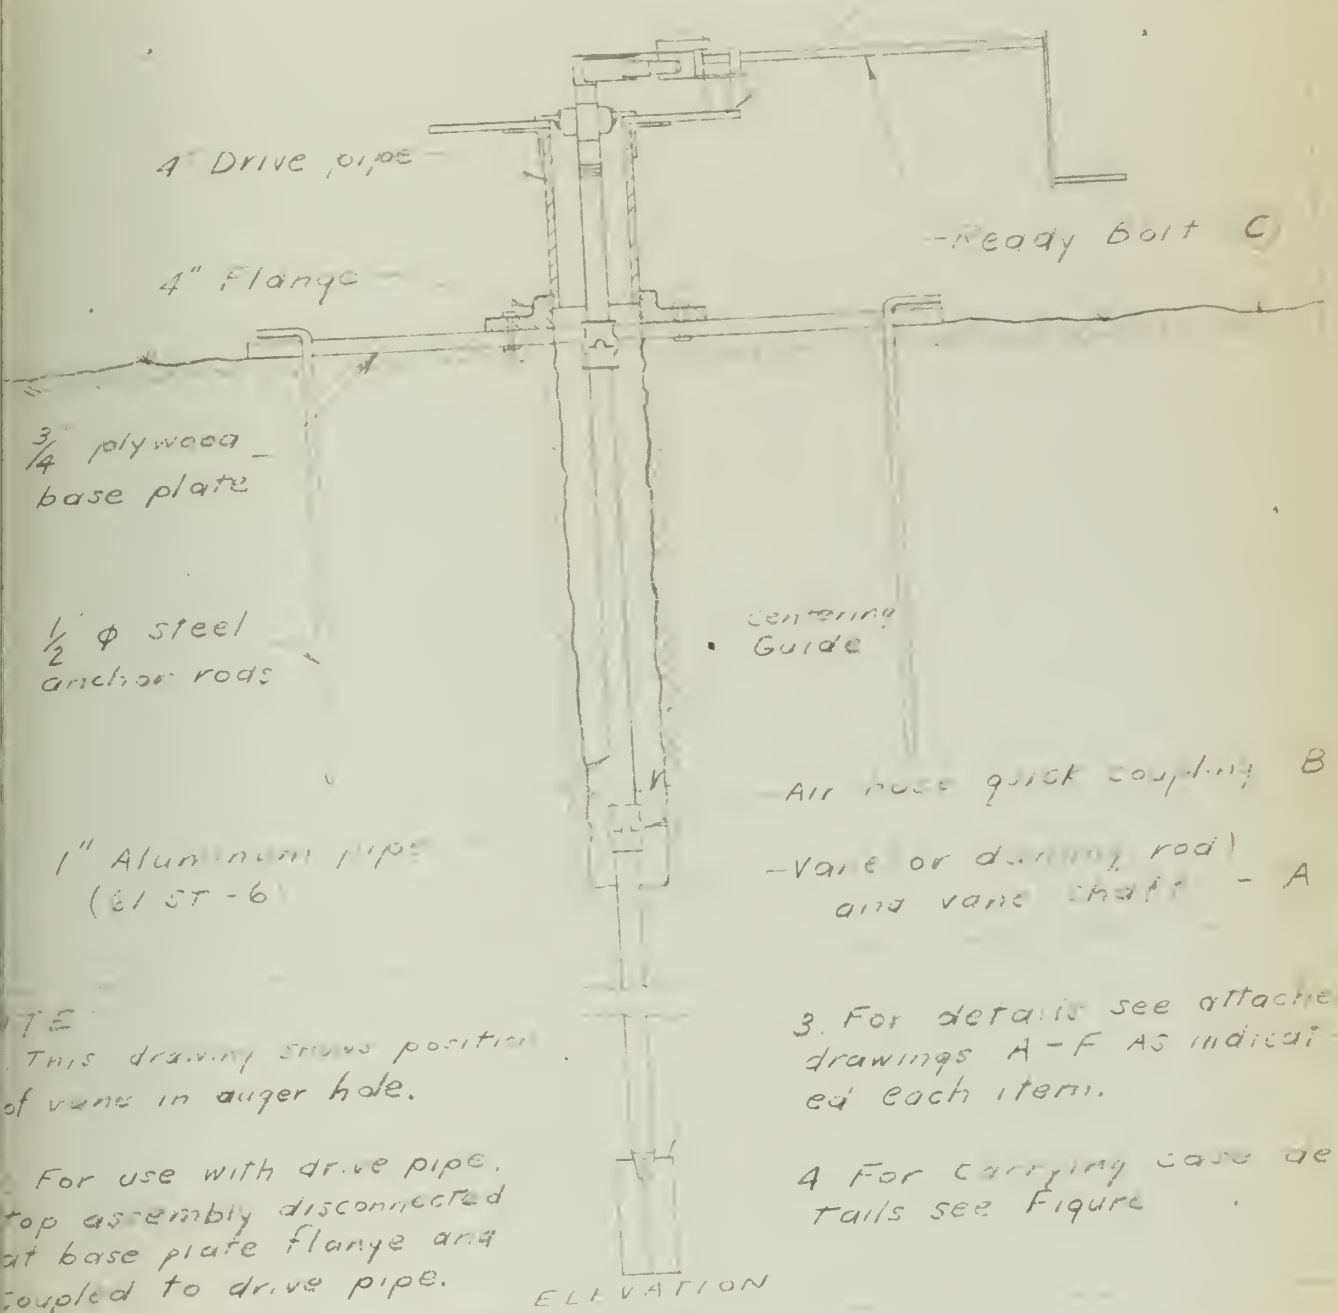 4" Drive pipe
4" Flange
Ready bolt C
3/4 plywood
base plate
1/2 φ steel
anchor rods
Centering
Guide
Air hose quick coupling B
1" Aluminum pipe
(61 ST-6)
Vane or dummy rod
and vane shaft - A
This drawing shows position
of vane in auger hole.
For use with drive pipe.
top assembly disconnected
at base plate flange and
coupled to drive pipe.
3. For details see attache
drawings A-F As indicat-
ed each item.
4 For carrying case de
tails see Figure
ELEVATION